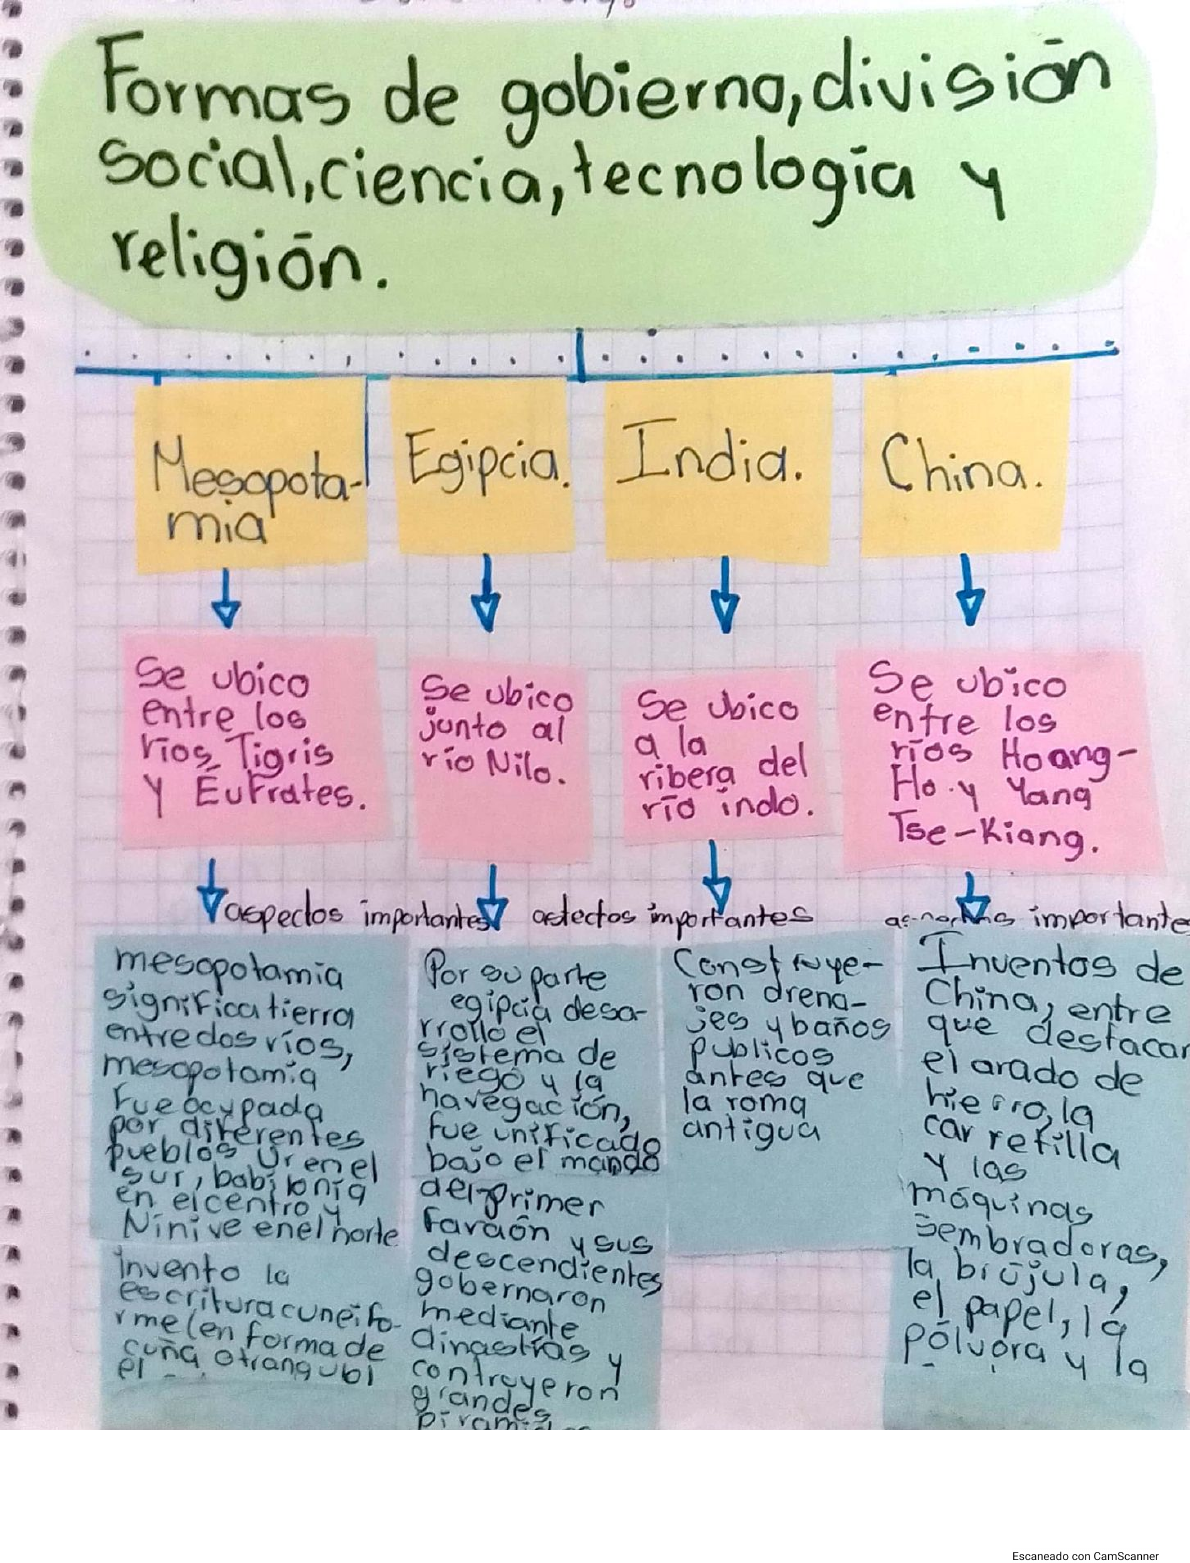 Formas de gobierno, división
social, ciencia, tecnología y
religión.
Mesopota-
mia
Egipcia.
India.
China.
Se ubico
entre los
ríos Tigris
y Eufrates.
Se ubico
junto al
río Nilo.
Se ubico
a la
ribera del
río indo.
Se ubico
entre los
ríos Hoang-
Ho y Yang
Tse-Kiang.
aspectos importantes
importantes
importante
mesopotamia
significa tierra
entre dos ríos,
mesopotamia
fue ocupada
por diferentes
pueblos Ur en el
sur, babilonia
en el centro y
Nínive en el norte
Invento la
escritura cuneifo-
rme (en forma de
cuña o
el
Por su parte
egipcia desa-
rrollo el
sistema de
riego y la
navegación,
fue unificado
bajo el mando
del primer
Faraón y sus
descendientes
gobernaron
mediante
dinastías y
controyeron
grandes
Construye-
ron drena-
jes y baños
publicos
antes que
la roma
antigua
Inventos de
China, entre
que destacan
el arado de
hierro, la
carretilla
y las
máquinas
sembradoras,
la brújula,
el papel, la
pólvora y la
Escaneado con CamScanner